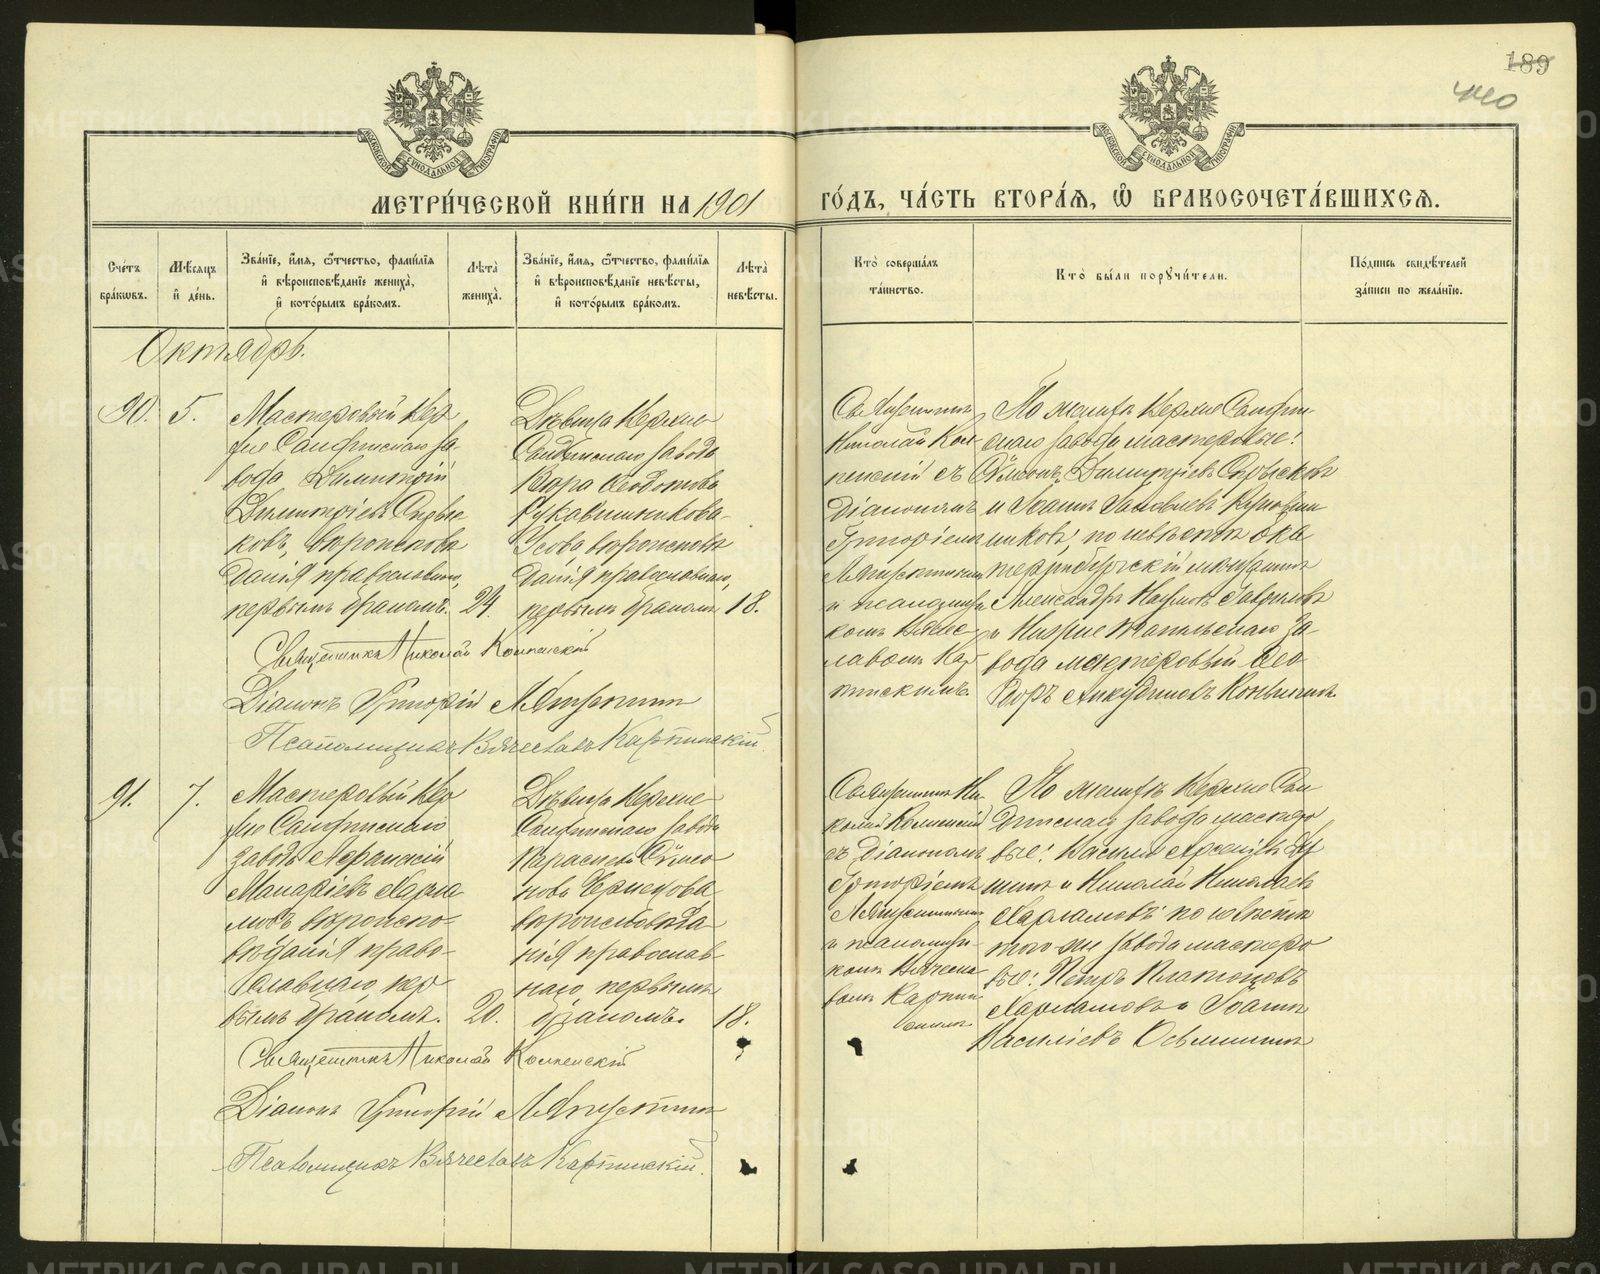 189
440
МЕТРИ́ЧЕСКОЙ КНИ́ГИ НА 1901 ГО́ДЪ, ЧА́СТЬ ВТОРА́Я, Ѿ БРАКОСОЧЕТА́ВШИХСЯ.
МОСКОВСКОЙ СѴНОДАЛЬНОЙ ТИПОГРАФІИ
МОСКОВСКОЙ СѴНОДАЛЬНОЙ ТИПОГРАФІИ
Сче́тъ бра́ковъ.
Мѣ́сяцъ и҆ де́нь.
Зва́нїе, и҆́мя, ѻ҆́тчество, фами́лїя
и҆ вѣроисповѣ́данїе жениха̀,
и҆ кото́рымъ бра́комъ.
Лѣ́та жениха̀.
Зва́нїе, и҆́мя, ѻ҆́тчество, фами́лїя
и҆ вѣроисповѣ́данїе невѣ́сты,
и҆ кото́рымъ бра́комъ.
Лѣ́та невѣ́сты.
Кто̀ соверша́лъ
та́инство.
Кто̀ бы́ли порꙋчи́тели.
По́дпись свидѣ́телей
за́писи по жела́нїю.
Октябрь.
90.
5.
Мастеровый Вер
хне Салдинскаго за-
вода Димитрій
Димитріевъ
ковъ, вѣроисповѣ
данія православнаго,
первымъ бракомъ.
24.
Дѣвица Верхне
Салдинскаго завода
Вара Ѳеодотова
Рукавишникова-
Усова вѣроисповѣ
данія православнаго,
первымъ бракомъ
18.
Священникъ
Николай Кол
пенскій съ
Діакономъ
Григоріемъ
Ляпустинымъ
и псаломщи
комъ Вяче
лавомъ Кар
пинскимъ.
По женихѣ Верхне Салдин
скаго завода мастеровые:
Сѵмеонъ Димитріевъ
и Іоаннъ Яковлевъ
никовъ; по невѣстѣ Ека
теринбургскій мѣщанинъ
Александръ Наумовъ Гавриловъ
и Нижне Тагильскаго за
вода мастеровый Ѳео
доръ Анкудиновъ
Священникъ Николай Колпенскій
Діаконъ Григорій Ляпустинъ
Псаломщикъ Вячеславъ Карпинскій.
91.
7.
Мастеровый Вер
хне Салдинскаго
завода Аѳанасій
Макаріевъ Харла
мовъ вѣроиспо-
вѣданія право-
славнаго, пер
вымъ бракомъ.
20.
Дѣвица Верхне
Салдинскаго завода
Параскева Сѵмео
нова
вѣроисповѣда
нія православ
наго, первымъ
бракомъ.
18.
Священникъ Ни
колай Колпенскій
съ Діакономъ
Григоріемъ
Ляпустинымъ
и псаломщи-
комъ Вячесла
вомъ Карпин
скимъ.
По женихѣ Верхне Сал
динскаго завода мастеро
вые: Василій Арсеніевъ
и Николай Николаевъ
Харламовъ; по невѣстѣ
того же завода мастеро
вые: Петръ Платоновъ
Харламовъ и Іоаннъ
Василіевъ Осьмининъ
Священникъ Николай Колпенскій
Діаконъ Григорій Ляпустинъ
Псаломщикъ Вячеславъ Карпинскій.
METRIKI.GASO-URAL.RU